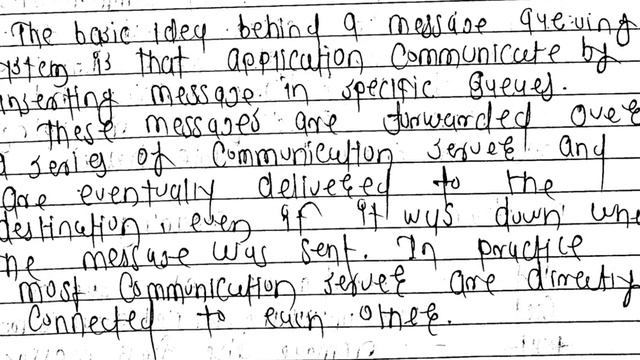 The basic idea behind a message queuing
ystem is that application communicate by
inserting message in specific queues.
These messages are forwarded over
a series of communication server and
are eventually delivered to the
destination even if it was down whe
he message was sent. In practice
most communication server are directly
connected to each other.